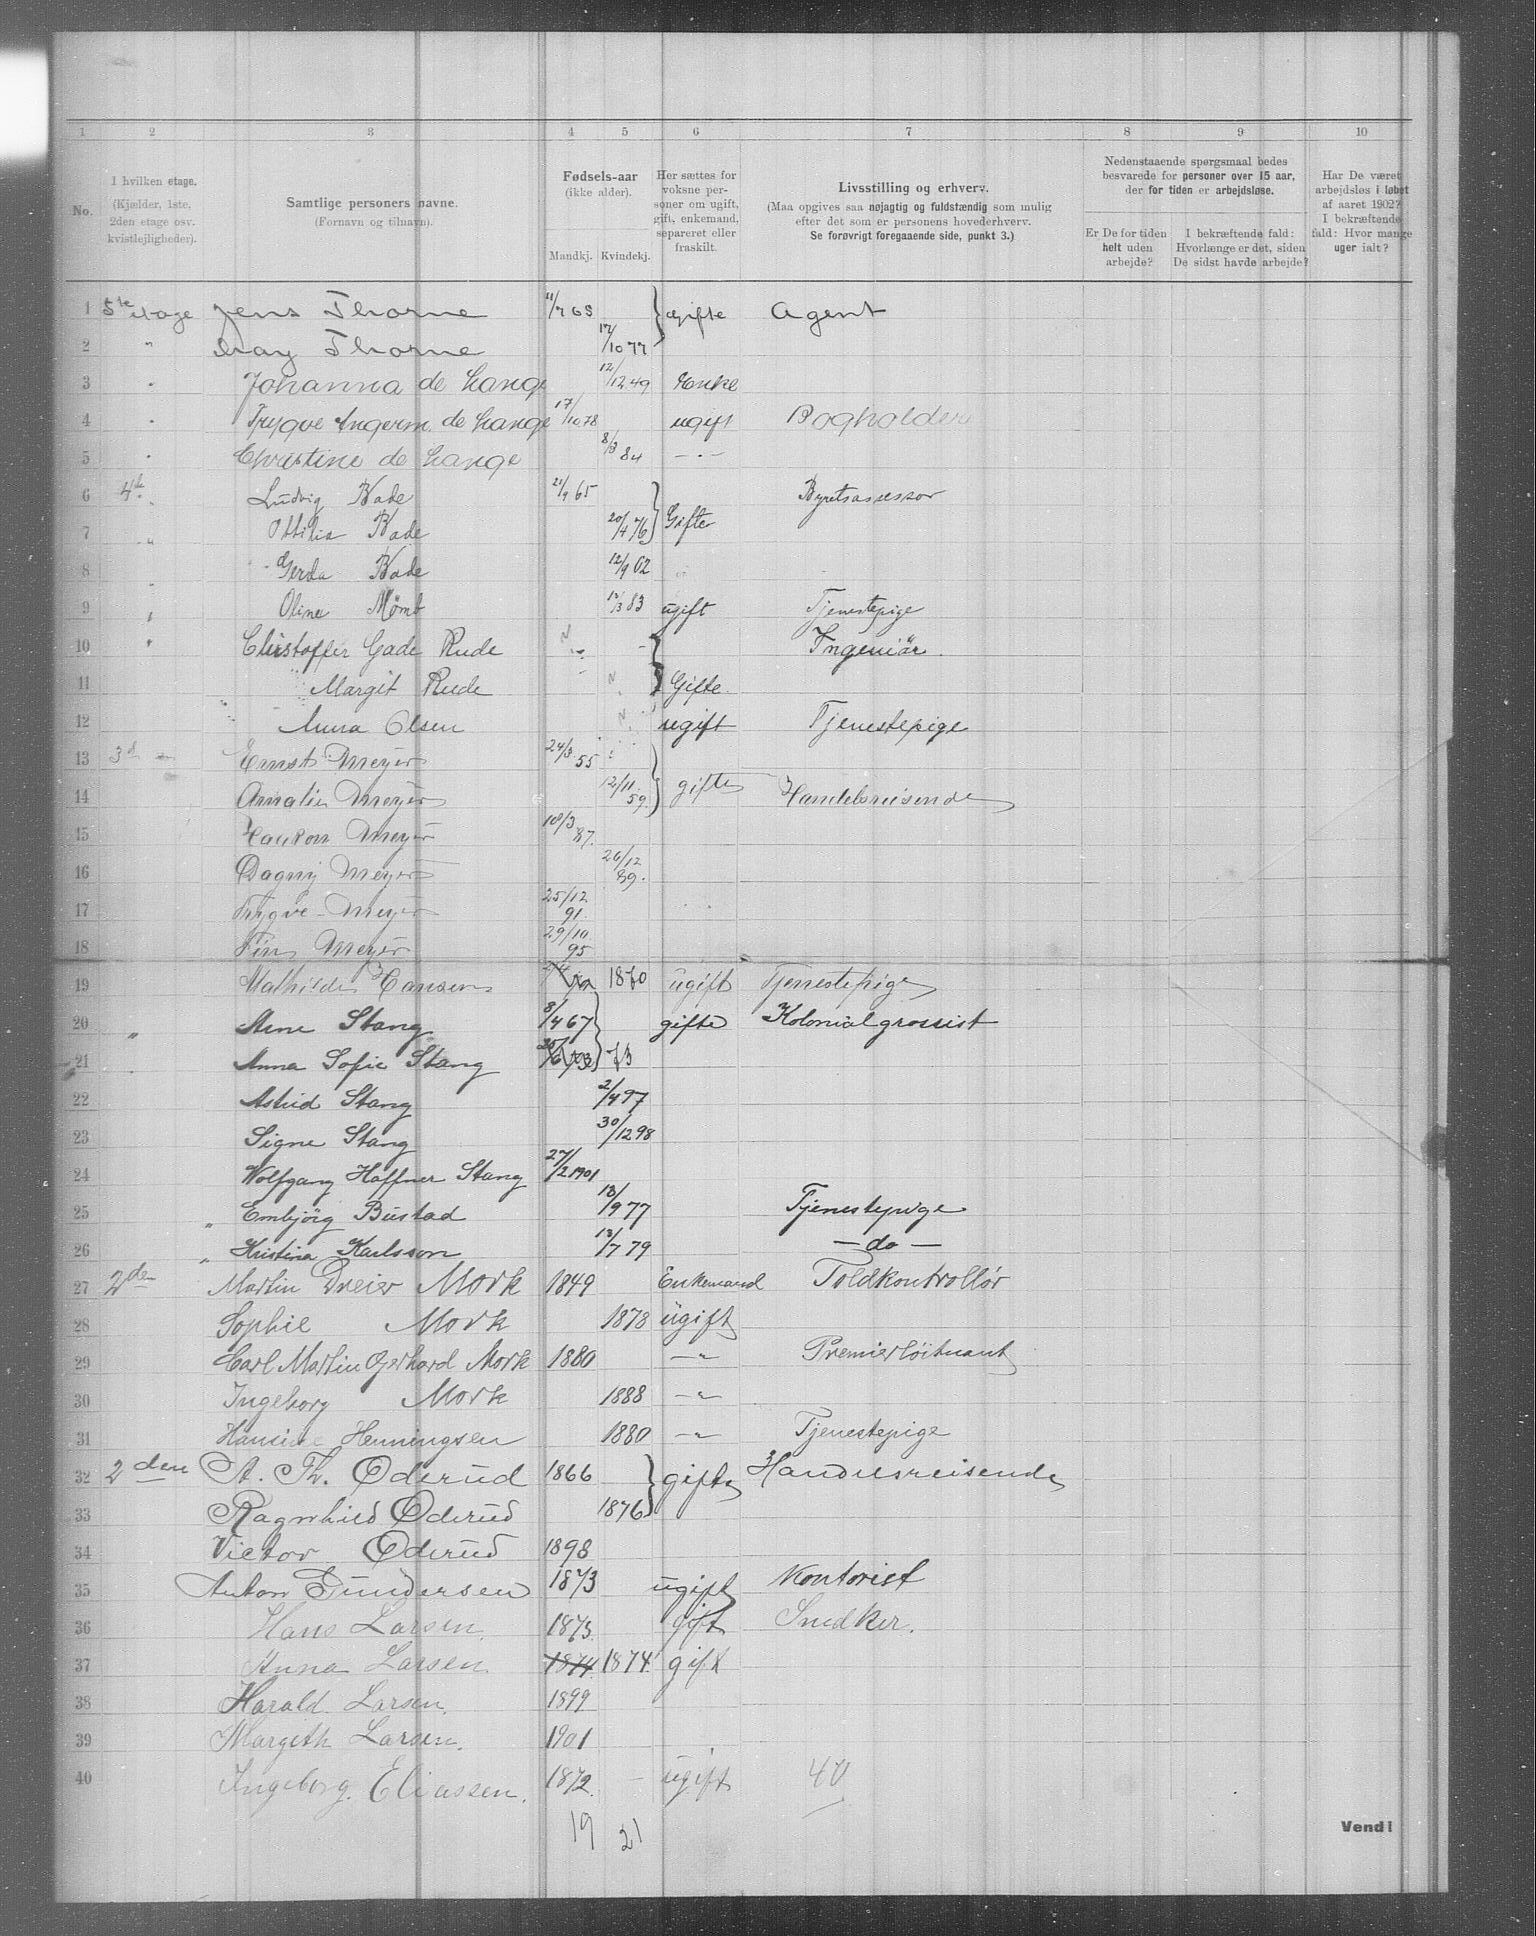 1 2 3 4 5 6 7 8 9 10
No.
I hvilken etage.
(Kjælder, 1ste,
2den etage osv.
kvistlejligheder).
Samtlige personers navne.
(Fornavn og tilnavn).
Fødsels-aar
(ikke alder).
Mandkj. Kvindekj.
Her sættes for
voksne per-
soner om ugift,
gift, enkemand,
separeret eller
fraskilt.
Livsstilling og erhverv.
(Maa opgives saa nøjagtig og fuldstændig som mulig
efter det som er personens hovederhverv.
Se forøvrigt foregaaende side, punkt 3.)
Nedenstaaende spørgsmaal bedes
besvarede for personer over 15 aar,
der for tiden er arbejdsløse.
Er De for tiden
helt uden
arbejde?
I bekræftende fald:
Hvorlænge er det, siden
De sidst havde arbejde?
Har De været
arbejdsløs i løbet
af aaret 1902?
I bekræftende
fald: Hvor mange
uger ialt?
1 5te etage Jens Thorne 11/7 68 gifte Agent
2 " May Thorne 17/10 77
3 " Johanna de Lange 12/12 49 Enke
4 " Trygve Ingerm. de Lange 17/10 78 ugift Bogholder
5 " Christine de Lange 8/3 84 — " —
6 4de Ludvig Bade 21/9 65 Byretsassessor
7 " Ottilia Bade 20/4 76 Gifte
8 " Gerda Bade 12/9 02
9 " Oline Mømb 83 ugift Tjenestepige
10 " Christoffer Gade Rude Ingeniør.
11 " Margit Rude Gifte.
12 " Anna Olsen ugift Tjenestepige
13 3d Ernst Meyer 24/3 55
14 Amalie Meyer 12/11 59 gifte Handelsreisende
15 Haakon Meyer 10/3 87.
16 Dagny Meyer 26/12 89.
17 Trygve Meyer 25/12 91.
18 Fin Meyer 29/10 95
19 Mathilde Hansen 1870 ugift Tjenestepige
20 " Arne Stang 8/4 67 gifte Kolonialgrossist
21 Anna Sofie Stang 73
22 Astrid Stang 2/4 97
23 Signe Stang 30/12 98
24 Wolfgang Haffner Stang 27/2 1901
25 " Embjörg Bustad 18/9 77 Tjenestepige
26 " Kristina Karlsson 13/7 79 — do —
27 2den Martin Dreier Mork 1849 Enkemand Toldkontrollör
28 Sophie Mork 1878 ugift
29 Carl Martin Gerhard Mork 1880 — " Premierlöitnant
30 Ingeborg Mork 1888 — "
31 Hansine Henningsen 1880 — " Tjenestepige
32 2den A. Th. Oderud 1866 gifte Handelsreisende
33 Ragnhild Oderud 1876
34 Victor Oderud 1898
35 Anton Gundersen 1873 ugift Kontorist
36 Hans Larsen 1875. gift Snedker.
37 Anna Larsen 1874. 1874 gift
38 Harald Larsen. 1899
39 Margith Larsen. 1901
40 Ingeborg. Eliassen. 1872. — ugift 40
19 21
Vend!